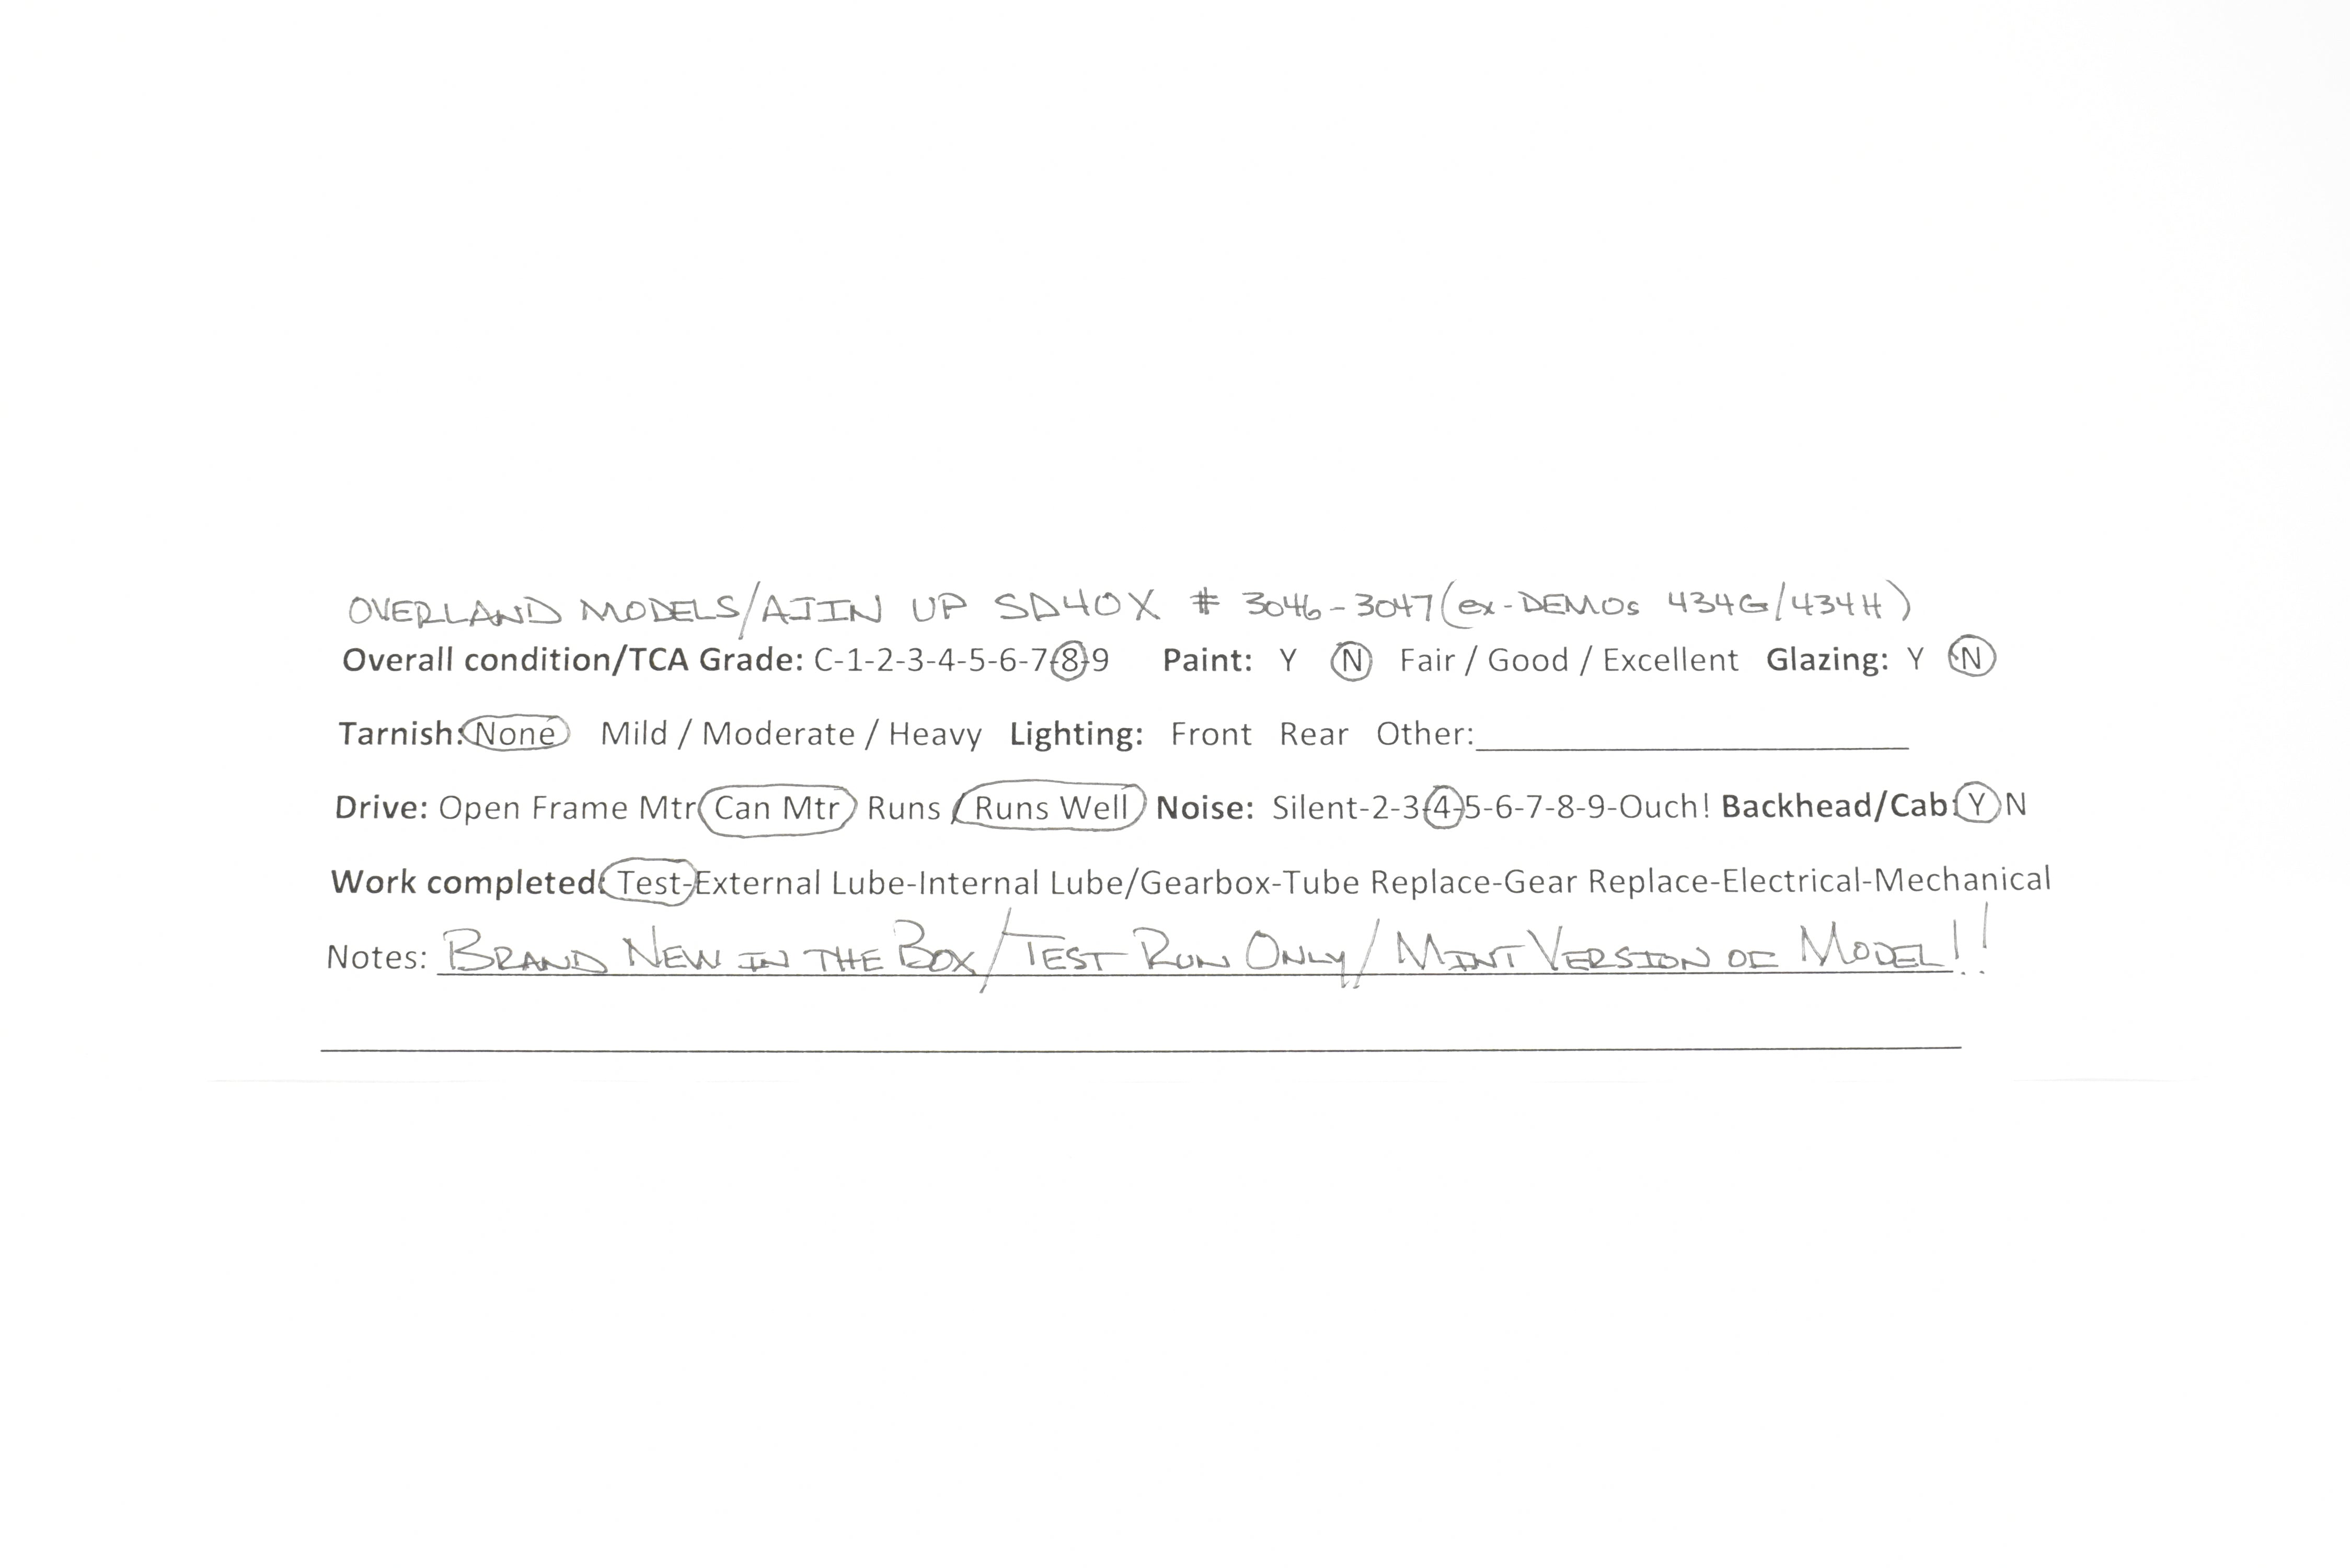 OVERLAND MODELS/AJIN UP SD40X # 3046-3047 (ex-DEMOs 434G/434H)
Overall condition/TCA Grade: C-1-2-3-4-5-6-7-8-9 Paint: Y N Fair / Good / Excellent Glazing: Y N
Tarnish: None Mild / Moderate / Heavy Lighting: Front Rear Other:
Drive: Open Frame Mtr Can Mtr Runs / Runs Well Noise: Silent-2-3-4-5-6-7-8-9-Ouch! Backhead/Cab: Y N
Work completed: Test-External Lube-Internal Lube/Gearbox-Tube Replace-Gear Replace-Electrical-Mechanical
Notes: BRAND NEW IN THE BOX/TEST RUN ONLY/MINT VERSION OF MODEL!!